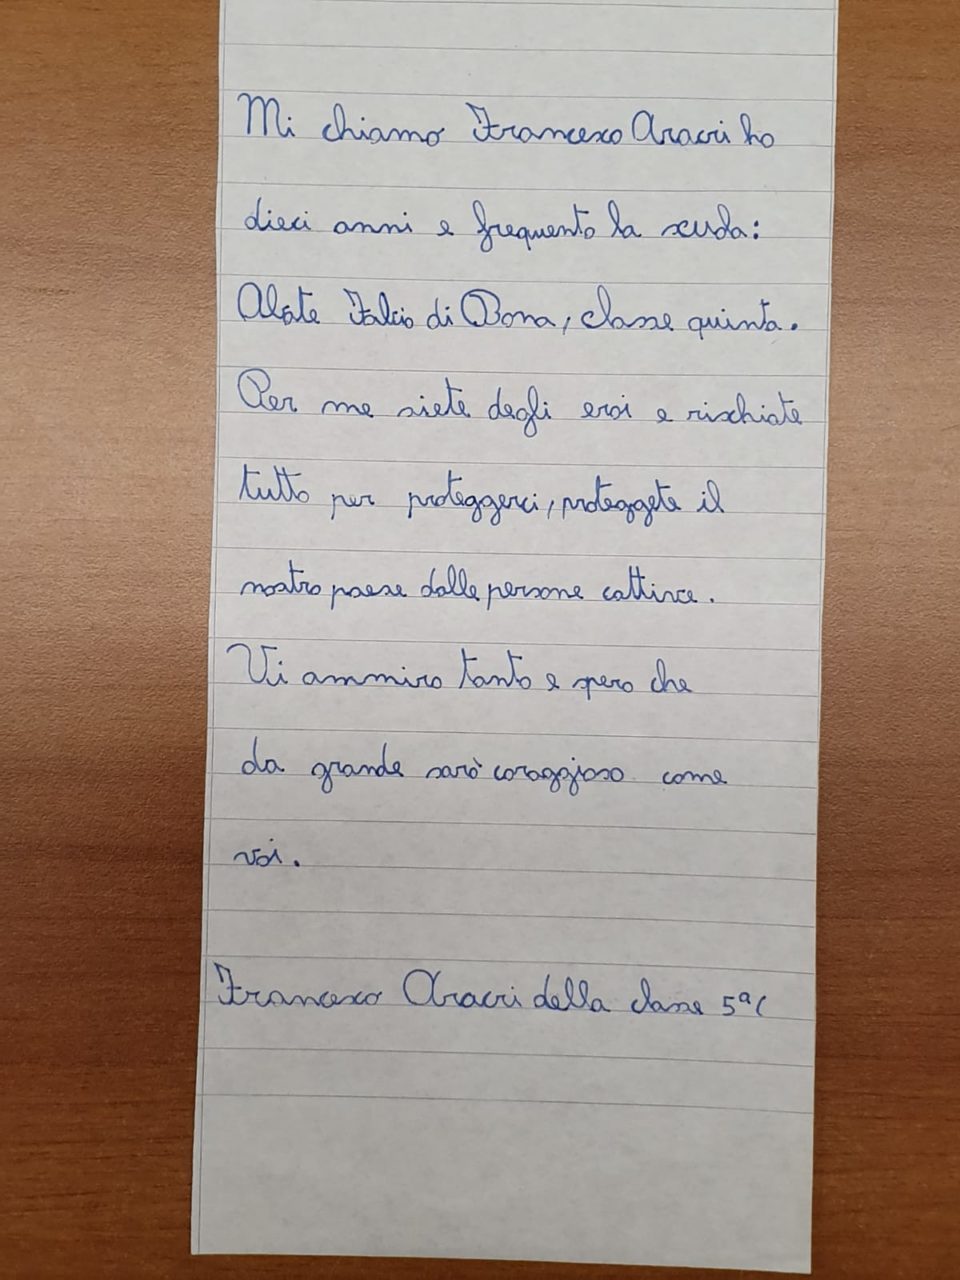 Mi chiamo Francesco Aracri ho
dieci anni e frequento la scuola:
Abate Fabio di Bona, classe quinta.
Per me siete degli eroi e rischiate
tutto per proteggerci, proteggete il
nostro paese dalle persone cattive.
Vi ammiro tanto e spero che
da grande sarò coraggioso come
voi.
Francesco Aracri della classe 5ªC